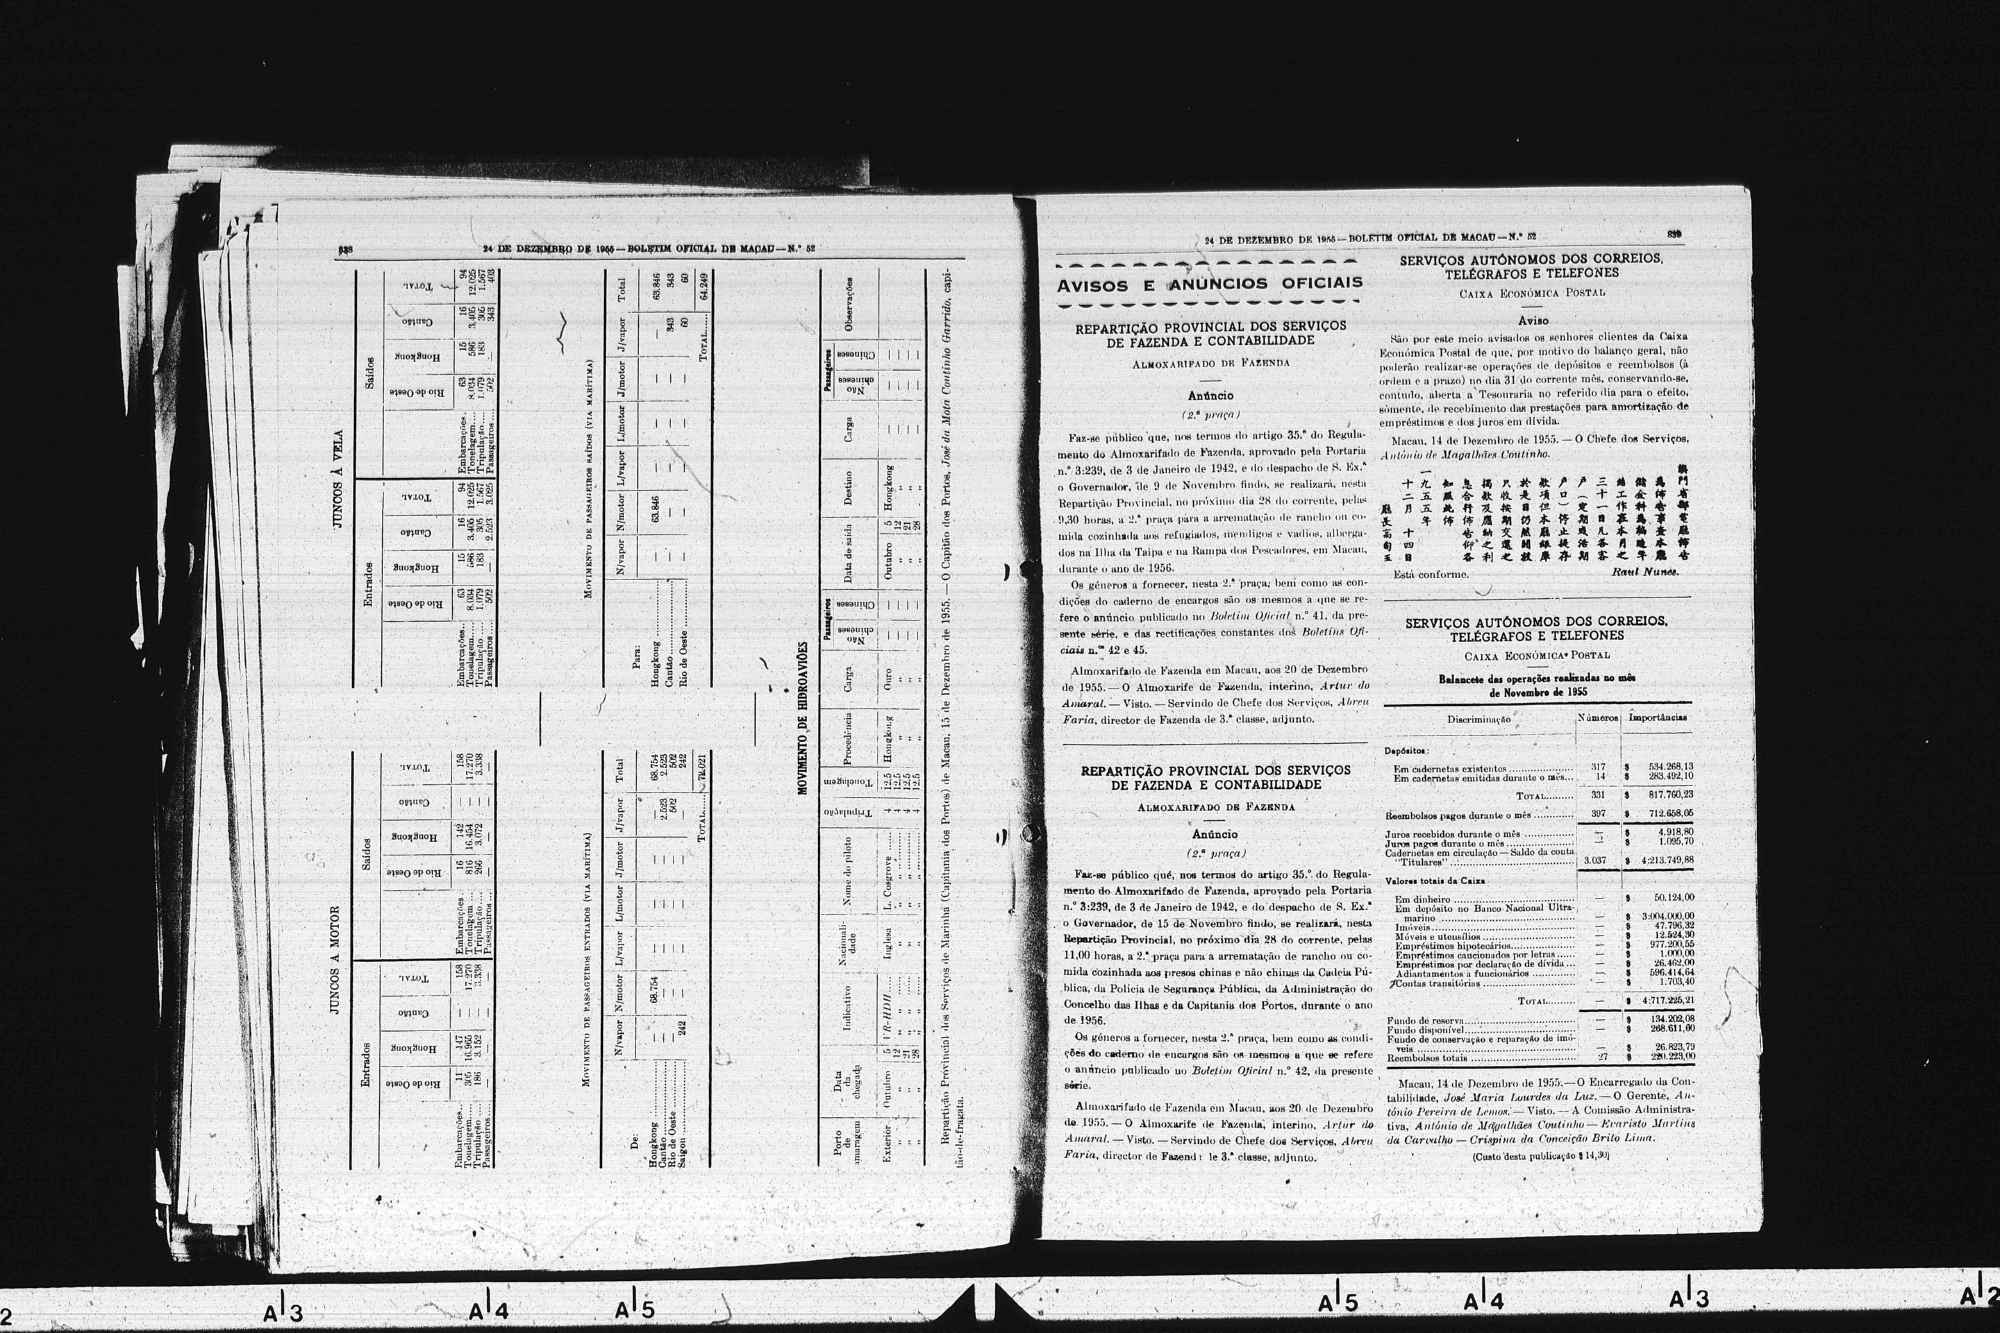 838
24 DE DEZEMBRO DE 1955 — BOLETIM OFICIAL DE MACAU — N.º 52
JUNCOS A MOTOR
Entrados
Saídos
Rio de Oeste Hongkong Cantão TOTAL
Rio de Oeste Hongkong Cantão TOTAL
Embarcações... 11 147 — 158 Embarcações... 16 142 — 158
Tonelagem..... 305 16.965 — 17.270 Tonelagem ... 816 16.454 — 17.270
Tripulação .... 186 3.152 — 3.338 Tripulação.... 266 3.072 — 3.338
Passageiros.... — — — — Passageiros... — — — —
JUNCOS À VELA
Entrados
Saídos
Rio de Oeste Hongkong Cantão TOTAL
Rio de Oeste Hongkong Cantão TOTAL
Embarcações.. 63 15 16 94 Embarcações.. 63 15 16 94
Tonelagem..... 8.034 586 3.405 12.025 Tonelagem.... 8.034 586 3.405 12.025
Tripulação .... 1.079 183 305 1.567 Tripulação.... 1.079 183 305 1.567
Passageiros.... 502 — 2.523 3.025 Passageiros.... 502 — 343 403
MOVIMENTO DE PASSAGEIROS ENTRADOS (VIA MARÍTIMA)
De: N/vapor N/motor L/vapor L/motor J/motor J/vapor Total
Hongkong ........ — 68.754 — — — — 68.754
Cantão ........ — — — — — 2.523 2.523
Rio de Oeste ........ — — — — — 502 502
Saigon ........ 242 — — — — — 242
TOTAL...... 72.021
MOVIMENTO DE PASSAGEIROS SAÍDOS (VIA MARÍTIMA)
Para: N/vapor N/motor L/vapor L/motor J/motor J/vapor Total
Hongkong ........ — 63.846 — — — — 63.846
Cantão ........ — — — — — 343 343
Rio de Oeste ........ — — — — — 60 60
TOTAL...... 64.249
MOVIMENTO DE HIDROAVIÕES
Porto de amaragem Data da chegada Indicativo Nacionalidade Nome do piloto Tripulação Tonelagem Procedência Carga Passageiros Não chineses Chineses Data de saída Destino Carga Passageiros Não chineses Chineses Observações
Exterior Outubro 5 VR-HDH ..... Inglesa L. Cosgrove ..... 4 12.5 Hongkong Ouro — — Outubro 5 Hongkong — — —
„ „ 12 „ „ ..... „ „ „ ..... 4 12.5 „ „ — — „ 12 „ — — —
„ „ 21 „ „ ..... „ „ „ ..... 4 12.5 „ „ — — „ 21 „ — — —
„ „ 28 „ „ ..... „ „ „ ..... 4 12.5 „ „ — — „ 28 „ — — —
Repartição Provincial dos Serviços de Marinha (Capitania dos Portos) de Macau, 15 de Dezembro de 1955. — O Capitão dos Portos, José da Mota Coutinho Garrido, capi-
tão-de-fragata.
24 DE DEZEMBRO DE 1955 — BOLETIM OFICIAL DE MACAU — N.º 52
839
AVISOS E ANÚNCIOS OFICIAIS
REPARTIÇÃO PROVINCIAL DOS SERVIÇOS
DE FAZENDA E CONTABILIDADE
ALMOXARIFADO DE FAZENDA
Anúncio
(2.ª praça)
Faz-se público que, nos termos do artigo 35.º do Regula-
mento do Almoxarifado de Fazenda, aprovado pela Portaria
n.º 3:239, de 3 de Janeiro de 1942, e do despacho de S. Ex.ª
o Governador, de 9 de Novembro findo, se realizará, nesta
Repartição Provincial, no próximo dia 28 do corrente, pelas
9,30 horas, a 2.ª praça para a arrematação de rancho ou co-
mida cozinhada aos refugiados, mendigos e vadios, alberga-
dos na Ilha da Taipa e na Rampa dos Pescadores, em Macau,
durante o ano de 1956.
Os géneros a fornecer, nesta 2.ª praça, bem como as con-
dições do caderno de encargos são os mesmos a que se re-
fere o anúncio publicado no Boletim Oficial n.º 41, da pre-
sente série, e das rectificações constantes dos Boletins Ofi-
ciais n.ºs 42 e 45.
Almoxarifado de Fazenda em Macau, aos 20 de Dezembro
de 1955. — O Almoxarife de Fazenda, interino, Artur do
Amaral. — Visto. — Servindo de Chefe dos Serviços, Abreu
Faria, director de Fazenda de 3.ª classe, adjunto.
REPARTIÇÃO PROVINCIAL DOS SERVIÇOS
DE FAZENDA E CONTABILIDADE
ALMOXARIFADO DE FAZENDA
Anúncio
(2.ª praça)
Faz-se público que, nos termos do artigo 35.º do Regula-
mento do Almoxarifado de Fazenda, aprovado pela Portaria
n.º 3:239, de 3 de Janeiro de 1942, e do despacho de S. Ex.ª
o Governador, de 15 de Novembro findo, se realizará, nesta
Repartição Provincial, no próximo dia 28 do corrente, pelas
11,00 horas, a 2.ª praça para a arrematação de rancho ou co-
mida cozinhada aos presos chinas e não chinas da Cadeia Pú-
blica, da Polícia de Segurança Pública, da Administração do
Concelho das Ilhas e da Capitania dos Portos, durante o ano
de 1956.
Os géneros a fornecer, nesta 2.ª praça, bem como as condi-
ções do caderno de encargos são os mesmos a que se refere
o anúncio publicado no Boletim Oficial n.º 42, da presente
série.
Almoxarifado de Fazenda em Macau, aos 20 de Dezembro
de 1955. — O Almoxarife de Fazenda, interino, Artur do
Amaral. — Visto. — Servindo de Chefe dos Serviços, Abreu
Faria, director de Fazenda de 3.ª classe, adjunto.
SERVIÇOS AUTÓNOMOS DOS CORREIOS,
TELÉGRAFOS E TELEFONES
CAIXA ECONÓMICA POSTAL
Aviso
São por este meio avisados os senhores clientes da Caixa
Económica Postal de que, por motivo do balanço geral, não
poderão realizar-se operações de depósitos e reembolsos (à
ordem e a prazo) no dia 31 do corrente mês, conservando-se,
contudo, aberta a Tesouraria no referido dia para o efeito,
sòmente, de recebimento das prestações para amortização de
empréstimos e dos juros em dívida.
Macau, 14 de Dezembro de 1955. — O Chefe dos Serviços,
António de Magalhães Coutinho.
爲佈告事查本廳
儲金科爲
結工作在本月之
三十一日凡各客
戶（定期或活期
戶口）停止提存
款項但本廳銀庫
於是日仍然開放
只收按期交還之
揭款及應納之利
息合行佈告仰各
知照此佈
一九五五年
十二月十四日
Está conforme.
Raul Nunes.
SERVIÇOS AUTÓNOMOS DOS CORREIOS,
TELÉGRAFOS E TELEFONES
CAIXA ECONÓMICA POSTAL
Balancete das operações realizadas no mês
de Novembro de 1955
Discriminação Números Importâncias
Depósitos:
Em cadernetas existentes .......... 317 $ 534.268,13
Em cadernetas emitidas durante o mês... 14 $ 283.492,10
TOTAL......... 331 $ 817.760,23
Reembolsos pagos durante o mês .......... 397 $ 712.658,05
Juros recebidos durante o mês .......... — $ 4.918,80
Juros pagos durante o mês .......... — $ 1.095,70
Cadernetas em circulação — Saldo da conta
"Titulares" .......... 3.037 $ 4:213.749,88
Valores totais da Caixa
Em dinheiro .......... — $ 50.124,00
Em depósito no Banco Nacional Ultra-
marino .......... — $ 3:004.000,00
Imóveis .......... — $ 47.796,32
Móveis e utensílios .......... — $ 12.524,30
Empréstimos hipotecários.......... — $ 977.200,55
Empréstimos caucionados por letras...... — $ 1.000,00
Empréstimos por declaração de dívida ... — $ 26.462,00
Adiantamentos a funcionários .......... — $ 596.414,64
Contas transitórias .......... — $ 1.703,40
TOTAL......... — $ 4:717.225,21
Fundo de reserva.......... — $ 134.202,08
Fundo disponível.......... — $ 268.611,60
Fundo de conservação e reparação de imó-
veis .......... — $ 26.823,79
Reembolsos totais .......... 27 $ 220.223,00
Macau, 14 de Dezembro de 1955. — O Encarregado da Con-
tabilidade, José Maria Lourdes da Luz. — O Gerente, An-
tónio Pereira de Lemos. — Visto. — A Comissão Administra-
tiva, António de Magalhães Coutinho — Evaristo Martins
da Carvalho — Crispina da Conceição Brito Lima.
(Custo desta publicação $ 14,30)
2 A|3 A|4 A|5 A|5 A|4 A|3 A|2